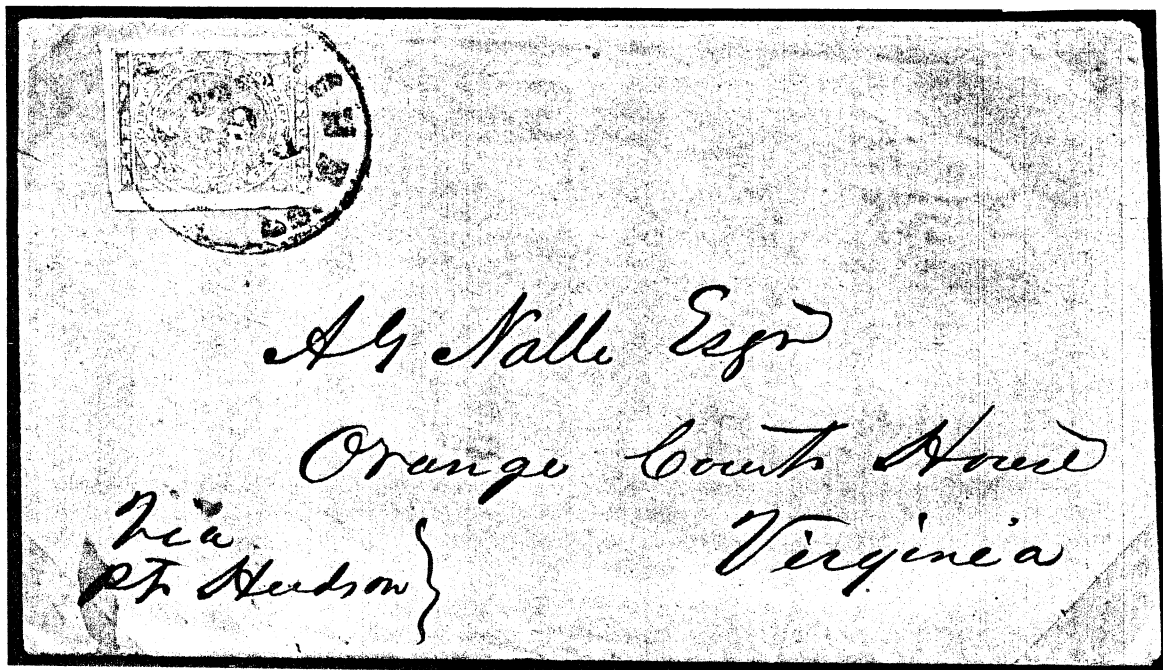 A G Nalle Esqr
Orange Court House
Virginia
Via
Pt. Hudson